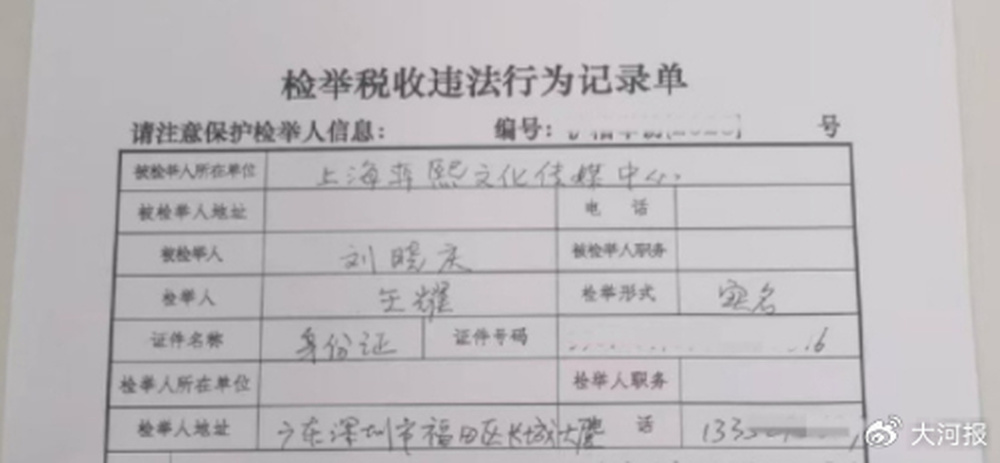 检举税收违法行为记录单
请注意保护检举人信息： 编号： 号
被检举人所在单位 上海 熙文化传媒中心
被检举人地址 电 话
被检举人 刘晓庆 被检举人职务
检举人 王耀 检举形式 实名
证件名称 身份证 证件号码 16
检举人所在单位 检举人职务
检举人地址 广东深圳市福田区长城大厦 话 133
大河报